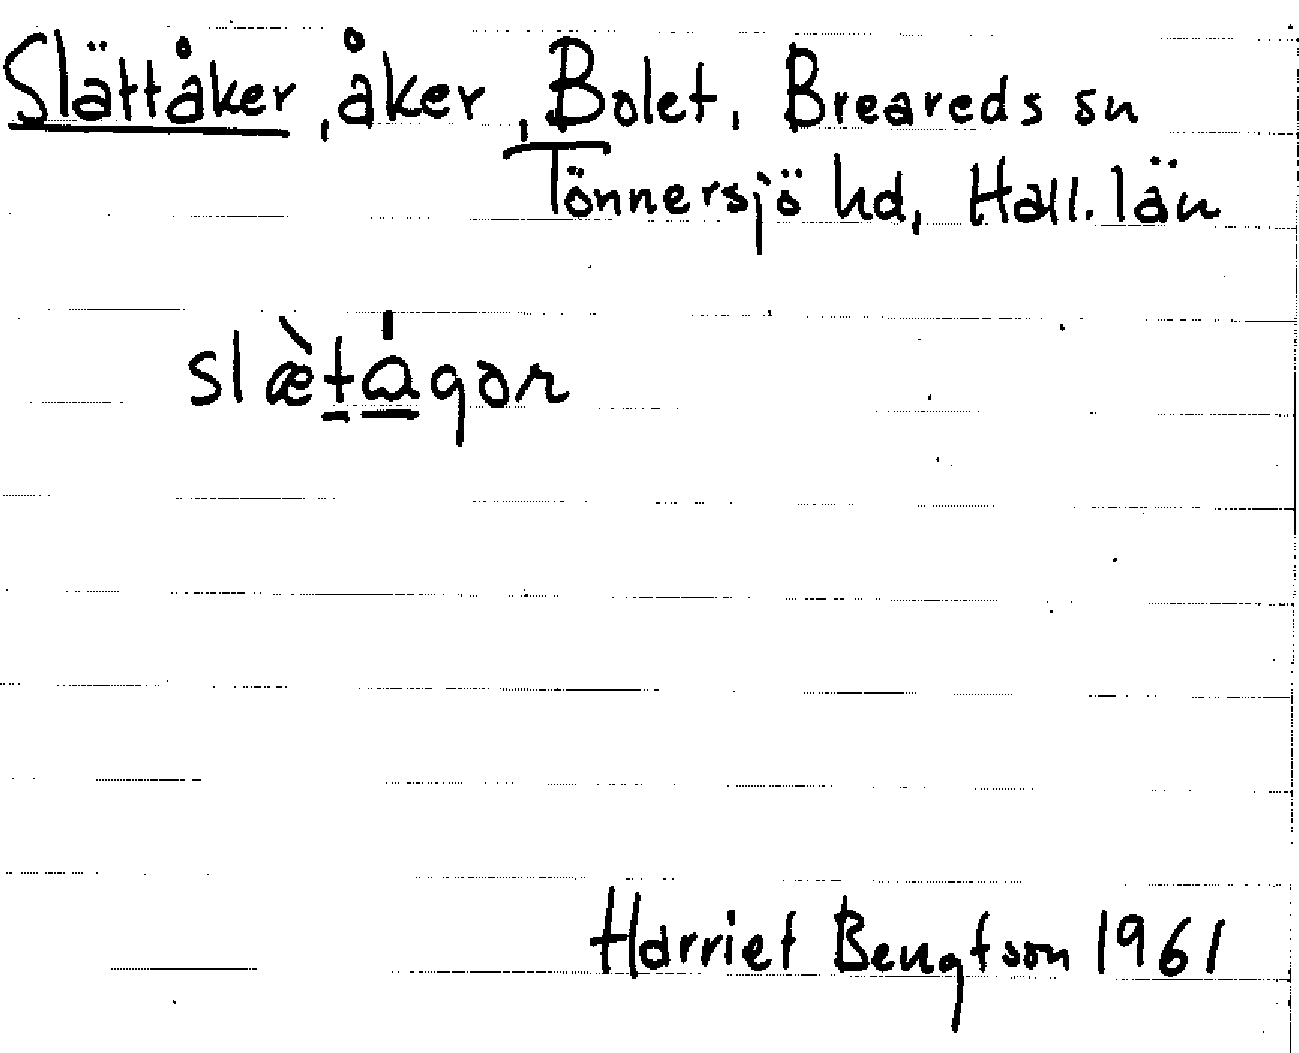 Slättåker, åker, Bolet, Breareds sn
Tönnersjö hd, Hall. län
slæ̀tågor
Harriet Bengtson 1961